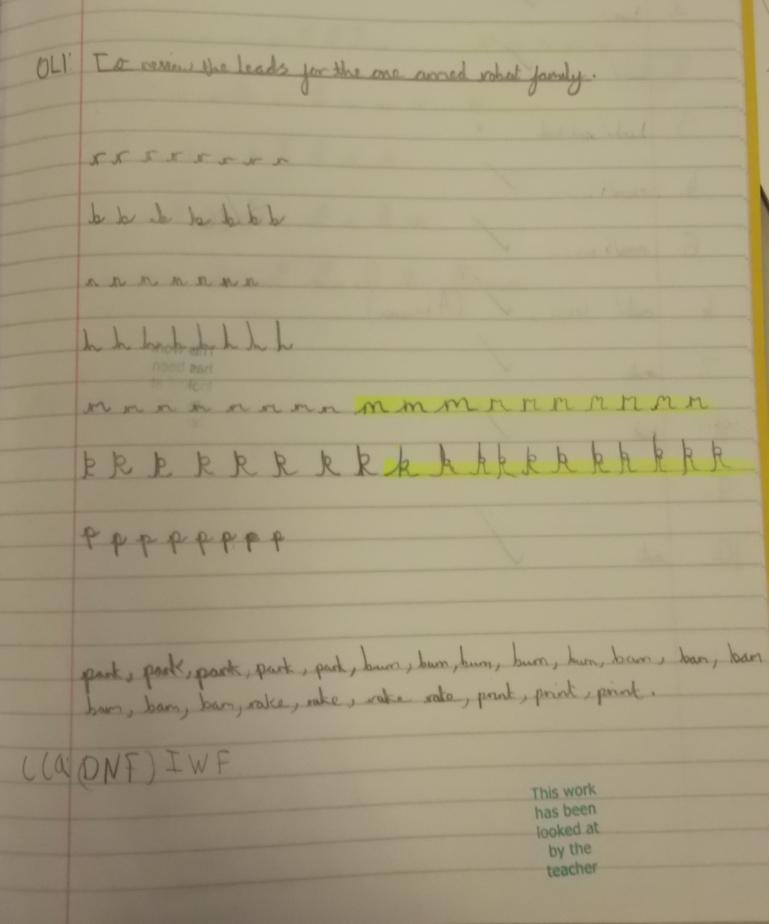 OLI: To revise the leads for the one armed robot family.
r r r r r r r r
b b b b b b b b
n n n n n n n
h h h h h h h h
need
m n n n n n n n m m m n n n n n n n
k k k k k k k k k k k k k k k k k k
p p p p p p p p
park, park, park, park, park, bum, bum, bum, bum, bum, bam, ban, ban
bam, bam, ban, rake, rake, rake rake, print, print, print.
((a(DNF) IWF
This work
has been
looked at
by the
teacher